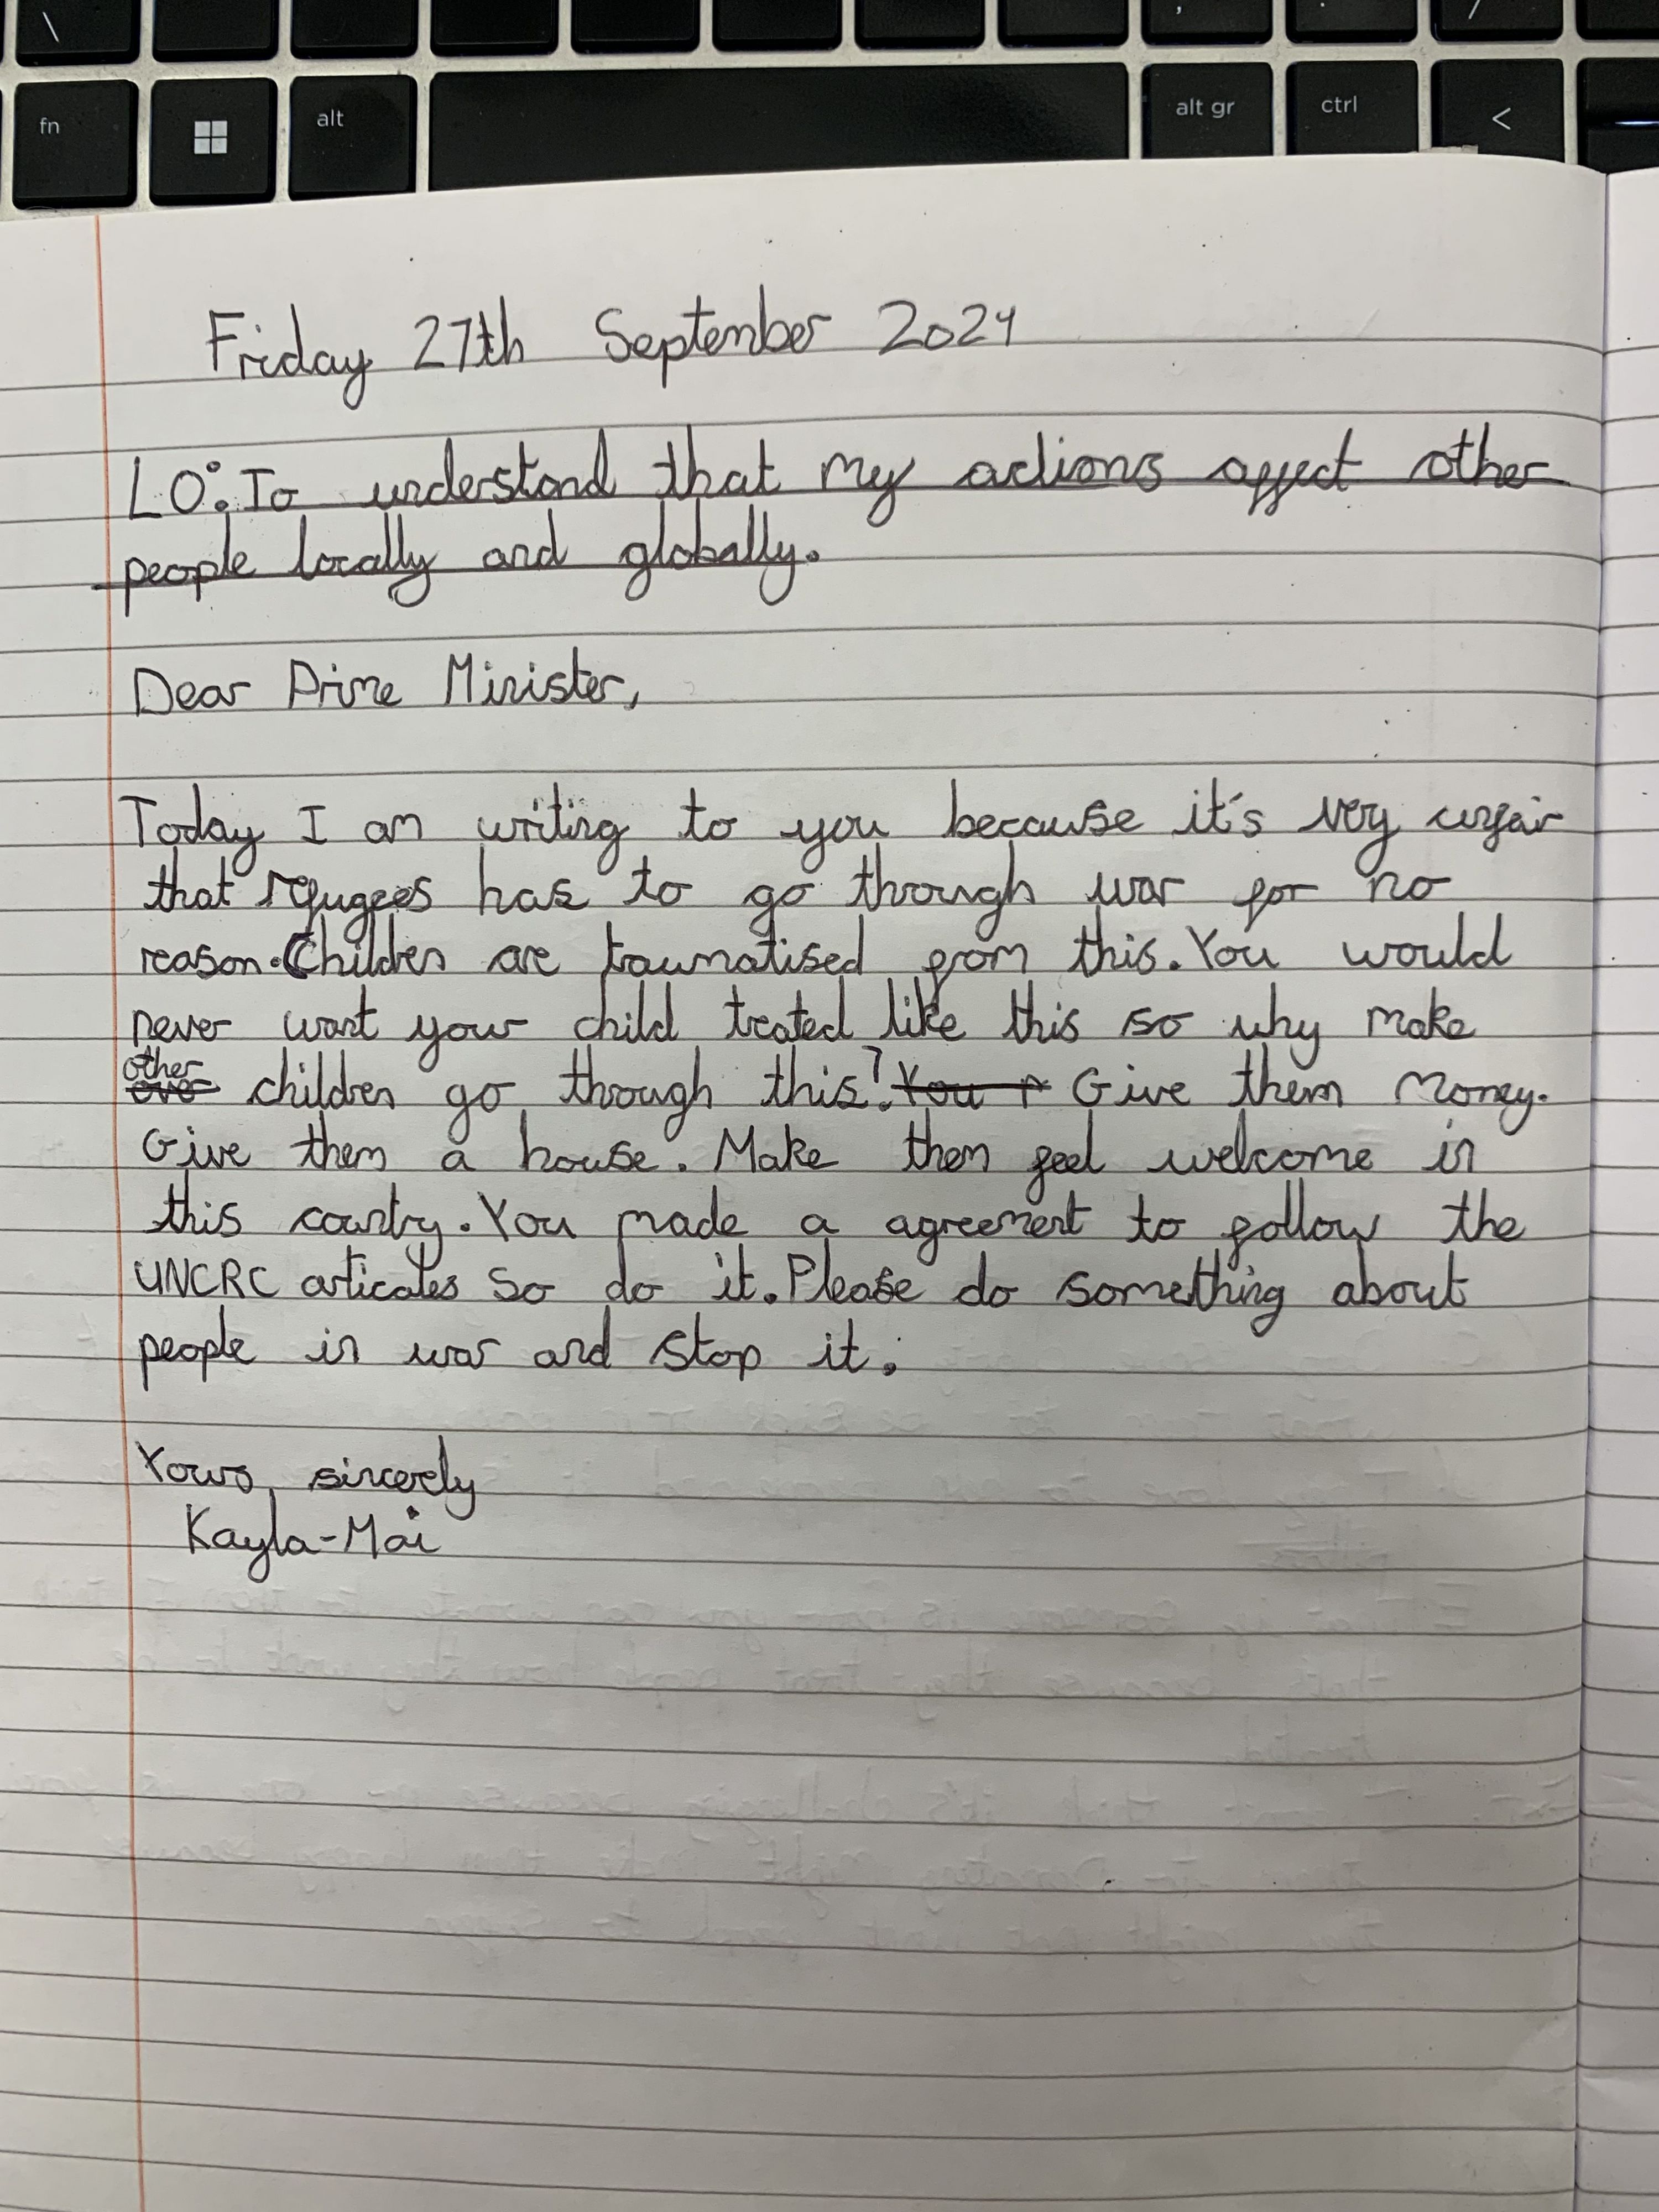 \
fn
alt
alt gr
ctrl
<
Friday 27th September 2024
LO: To understand that my actions affect other
people locally and globally.
Dear Prime Minister,
Today I am writing to you because it's very unfair
that refugees has to go through war for no
reason. Children are traumatised from this. You would
never want your child treated like this so why make
other
children go through this? Give them money.
Give them a house. Make them feel welcome in
this country. You made a agreement to follow the
UNCRC articales so do it. Please do something about
people in war and stop it.
Yours sincerely
Kayla-Mai